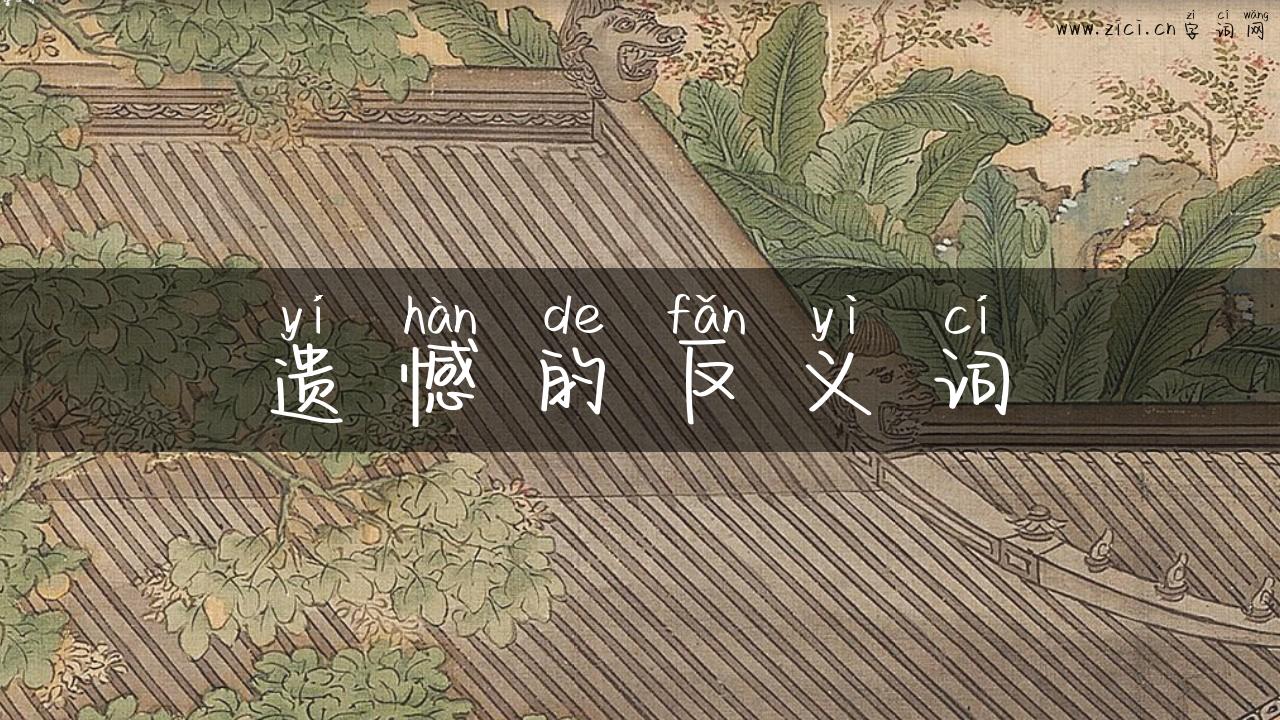 zì cí wǎng
www.zici.cn 字词网
yí hàn de fǎn yì cí
遗憾的反义词